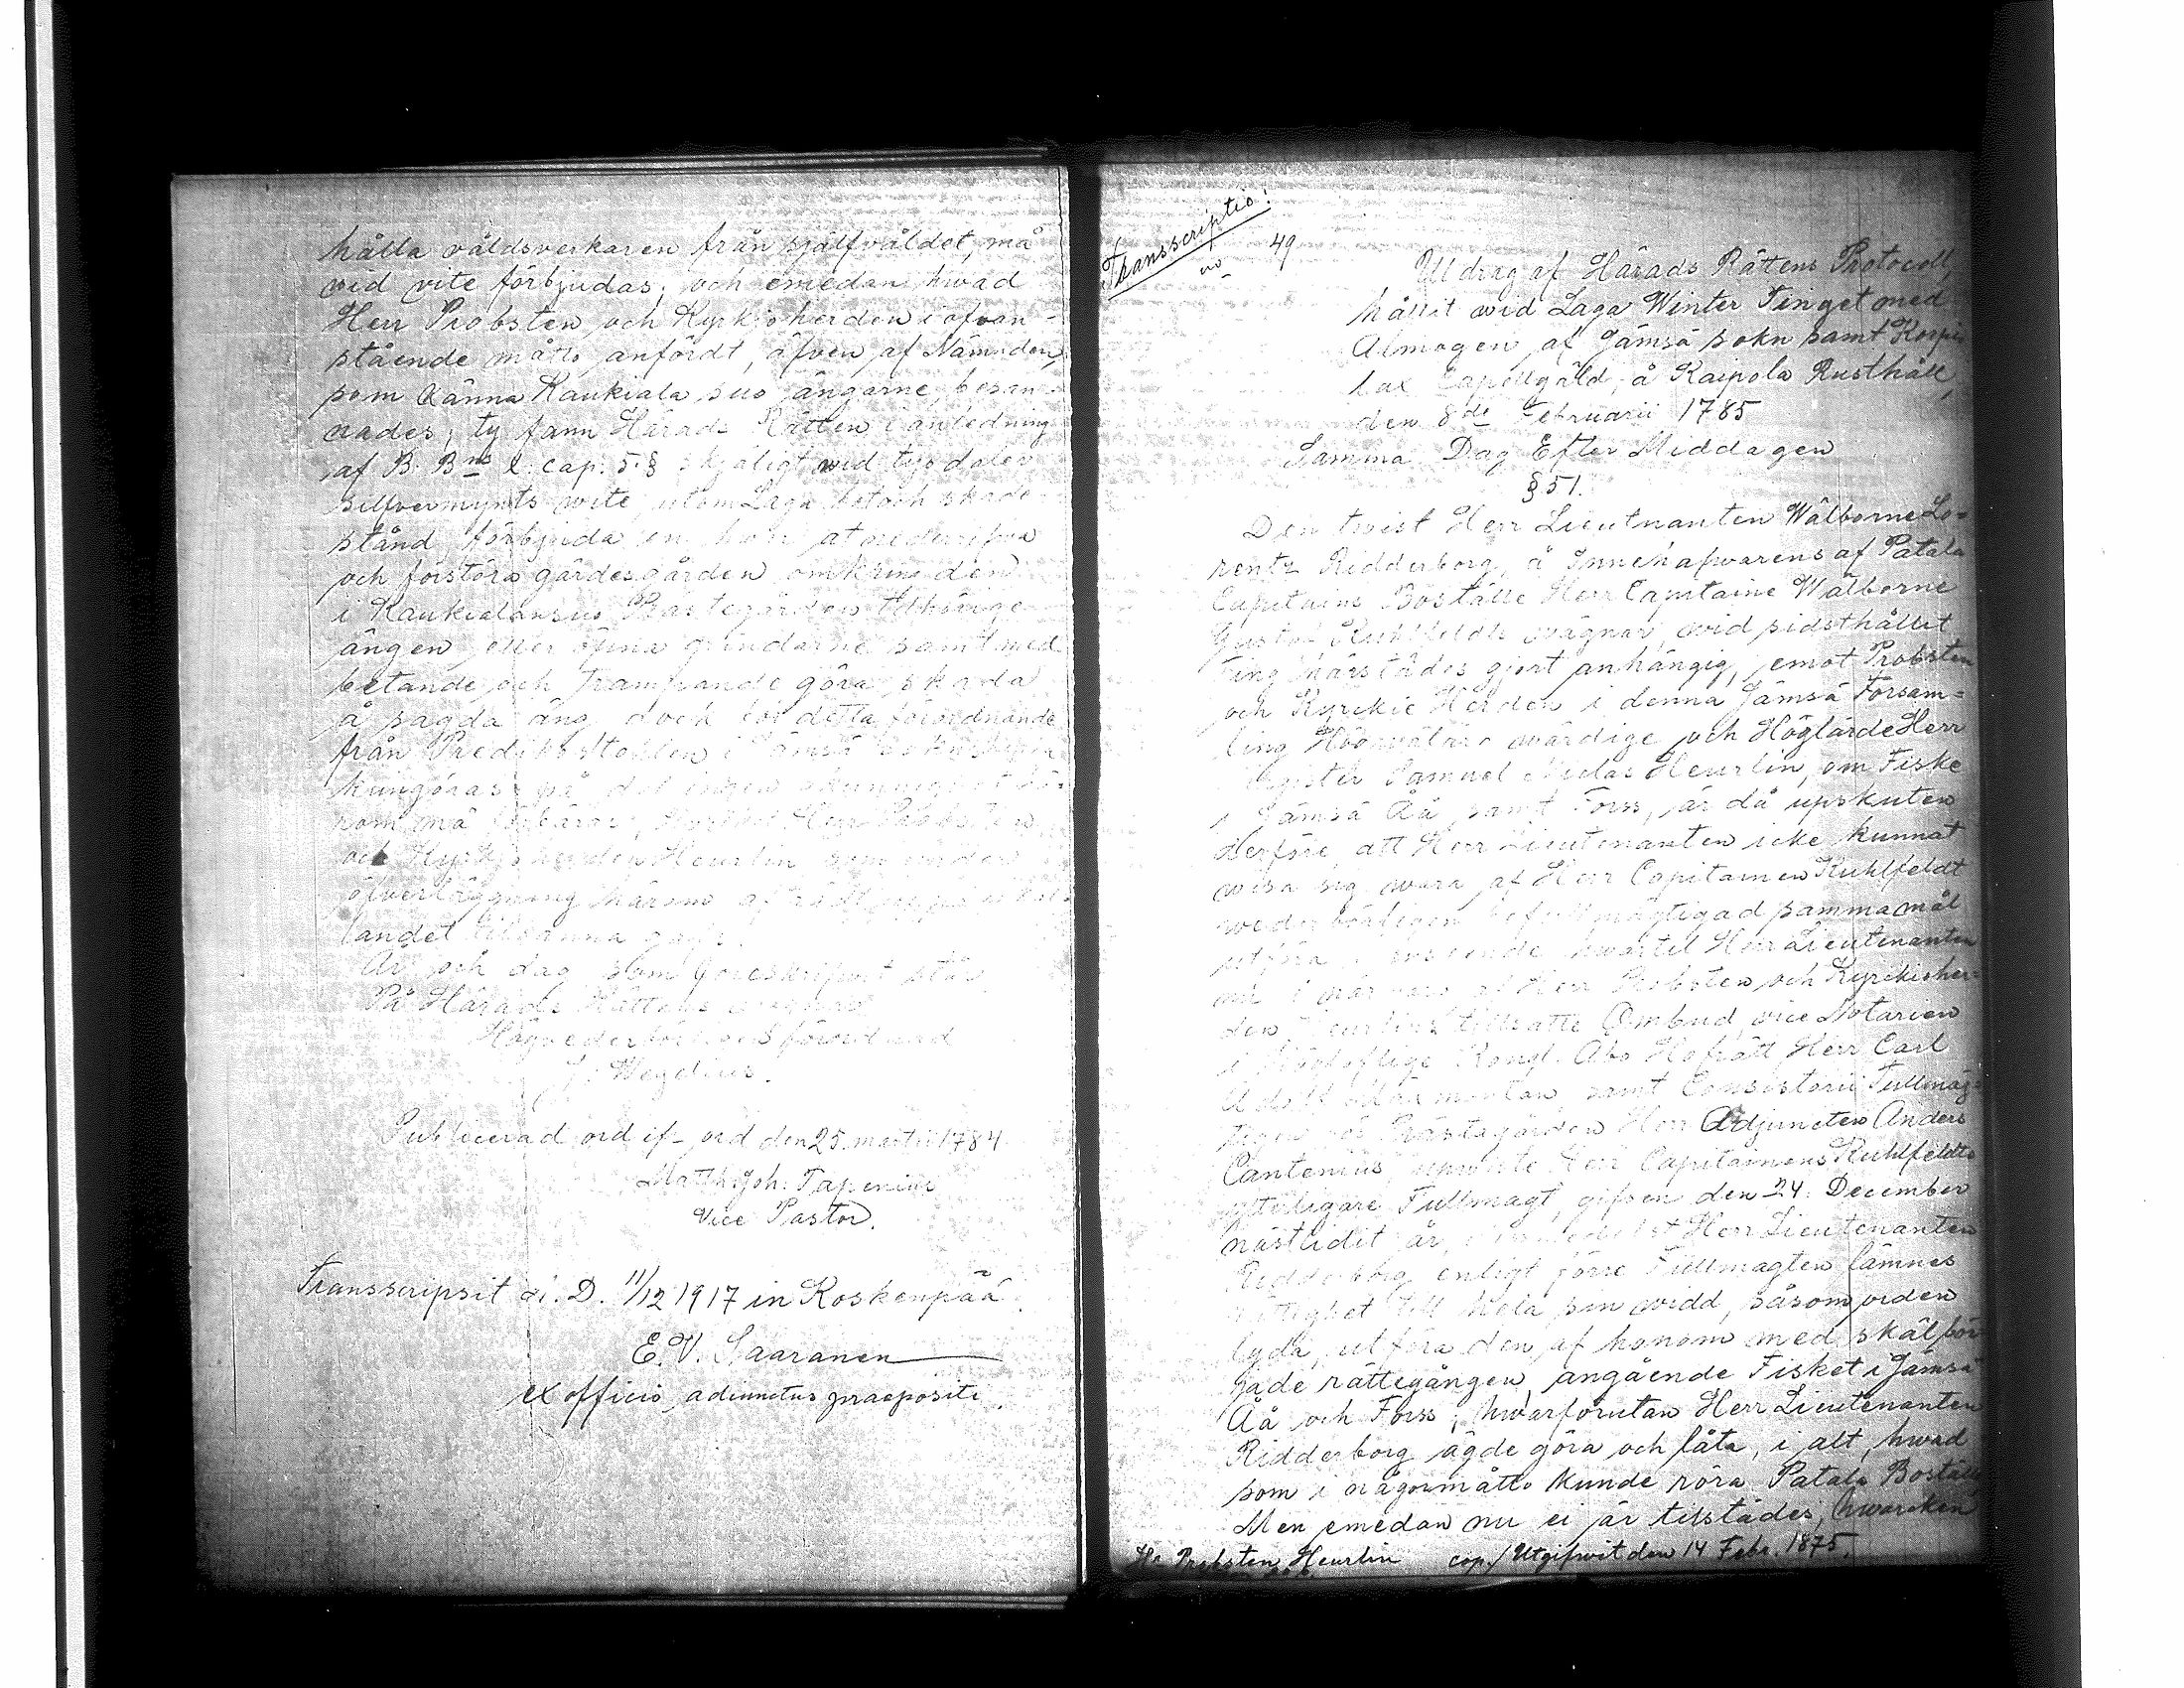 hålla våldsverkaren från sjelfvåldet, må
wid vite förbjudas; och emedan hwad
Herr Probsten och Kyrkioherden i ofvan-
stående måtto anfördt, äfven af Nämnden,
som känna Kaukiala suo ängarne, besan-
nades; ty fann Härads Rätten i anledning
af B. B:ns 2. cap. 5. § skjäligt wid tijo daler
silfvermynts wite, utom Laga bot och skade-
stånd förbjuda en hvar at nederrifva
och förstöra gärdesgården omkring den
i Kaukialansuo Prästegården tillhörige
ängen eller öpna grindarne samt med
betande och trampande göra skada
å sagda äng dock bör detta förordnande
från Predikostolen i Jämsä
kungöras på det ingen
må
och Kyrkjoherden Heurlin som under
öfverläggning härom af
landet
År och dag som föreskrifvit står
På Härads Rättens wägnar
förordnad
J. Wegelius.
Publicerad ord if- ord den 25. martii 1784
Matth. Joh. Tapenius
Vice Pastor.
Transscripsit a. D. 11/12 1917 in Koskenpää
E. V. Saaranen
ex officio adiunctus praepositi
Transscriptio!
no 49
Utdrag af Härads Rättens Protocoll
hållit wid Laga Winter Tinget med
Almogen af Jämsä sokn samt Korpi-
lax Capellgäld, å Kaipola Rusthåll,
den 8de Februarii 1785
Samma Dag Efter Middagen
§ 51.
Den twist Herr Lieutnanten Wälborne Lo-
rentz Ridderborg, å Innehafwarens af Patala
Capitains Boställe Herr Capitaine Wälborne
Gustaf Kuhlfeldts wägnar, wid sidsthållit
Ting härstädes gjort anhängig, emot Probsten
och Kyrckie Herden i denna Jämsä Försam-
ling Högwälärewärdige och Höglärde Herr
Magister Samuel Heurlin, om Fiske
i Jämsä Åå samt Forss, är då upskuten
derföre, att Herr Lieutenanten icke kunnat
wisa sig wara af Herr Capitainen Kuhlfeldt
wederbörligen befullmägtigad samma mål
utföra i anseende hwartil Herr Lieutenanten
nu i närvaro af Herr Probsten och Kyrckioher-
den Heurlins tillsatte Ombud, vice Notarien
i Högloflige Kongl. Åbo Hofrätt Herr Carl
Adolf samt Consistorii Fullmäg-
tigen för Prästegården Herr Adjuncten Anders
Cantenius upwiste Herr Capitainens Kuhlfeldts
ytterligare Fullmagt, gifven den 24. December
nästledit år, Herr Lieutenanten
Ridderborg enligt förre Fullmagten lämnes
rättighet till hela sin widd, såsom orden
lyda, utföra den af honom med skäl bör-
jade rättegången angående Fisket i Jämsä
Åå och Forss; hwarförutan Herr Lieutenanten
Ridderborg ägde göra och låta, i alt, hwad
som i någormåtto kunde röra Patala Boställe
Men emedan nu ei är tillstädes, hwarcken
Hr Probsten Heurlin cop./ Utgifwit den 14 Febr. 1875.